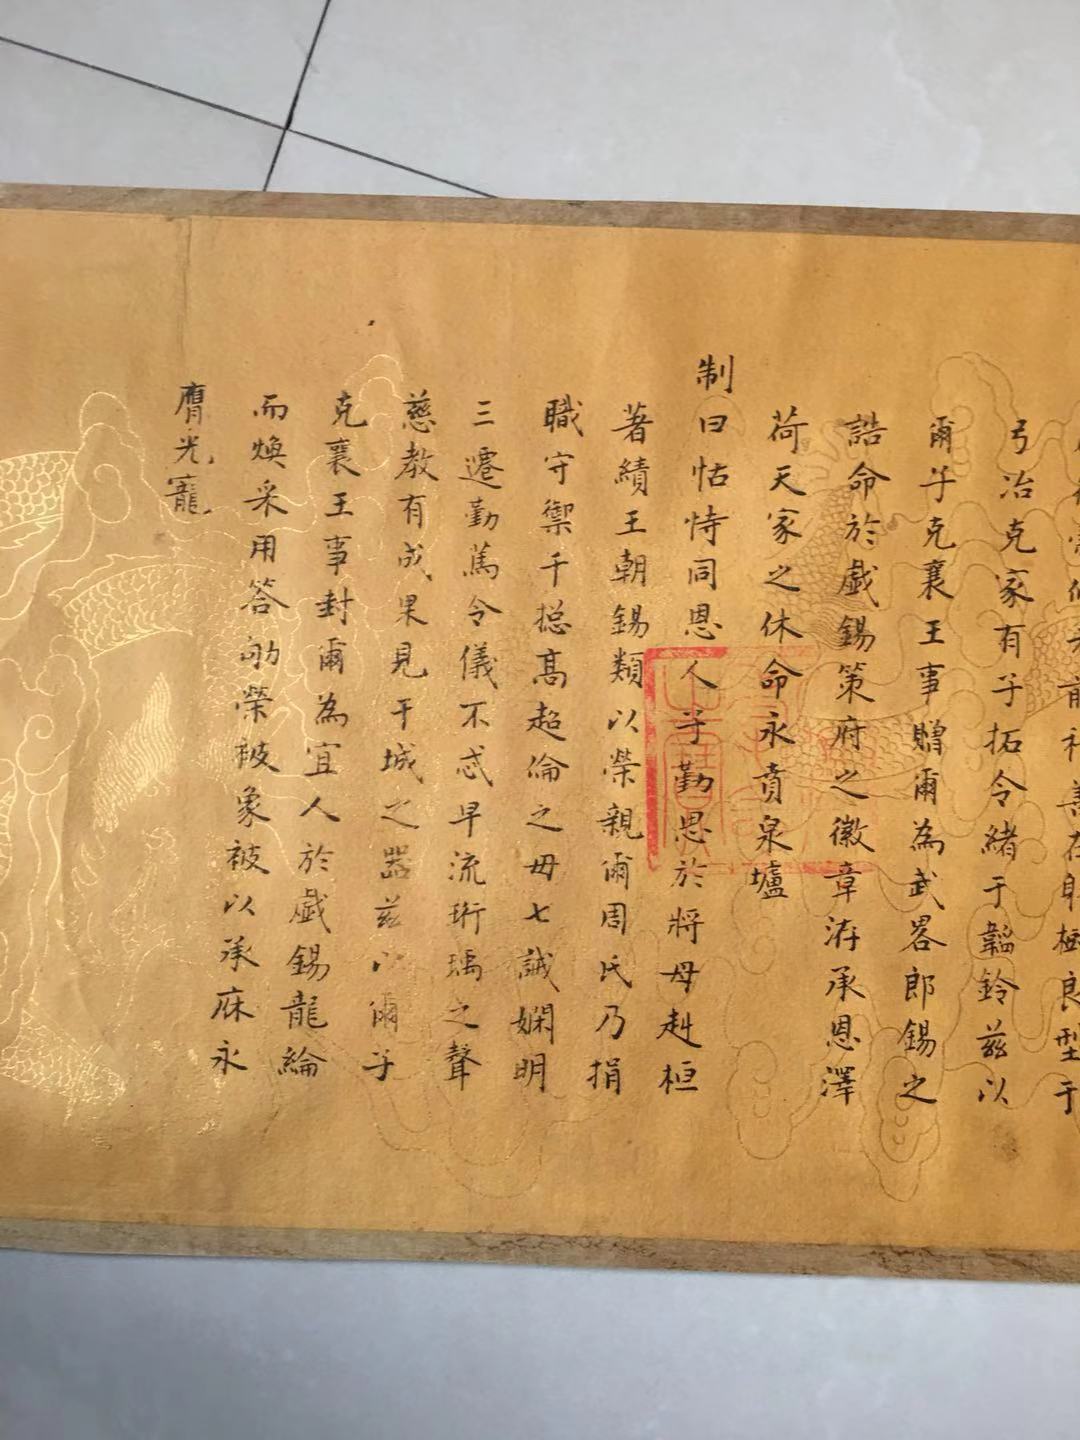 善在躬樹良型于
弓冶克家有子拓令緒于韜鈴茲以
爾子克襄王事贈爾為武畧郎錫之
誥命於戲錫策府之徽章洊承恩澤
荷天家之休命永賁泉壚
制曰怙恃同恩人子勤思於將母赳桓
著績王朝錫類以榮親爾周氏乃捐
職守禦千摠高超倫之母七誡嫻明
三遷勤篤令儀不忒早流珩瑀之聲
慈教有成果見干城之器茲以爾子
克襄王事封爾為宜人於戲錫龍綸
而煥采用答劬榮被象服以承庥永
膺光寵